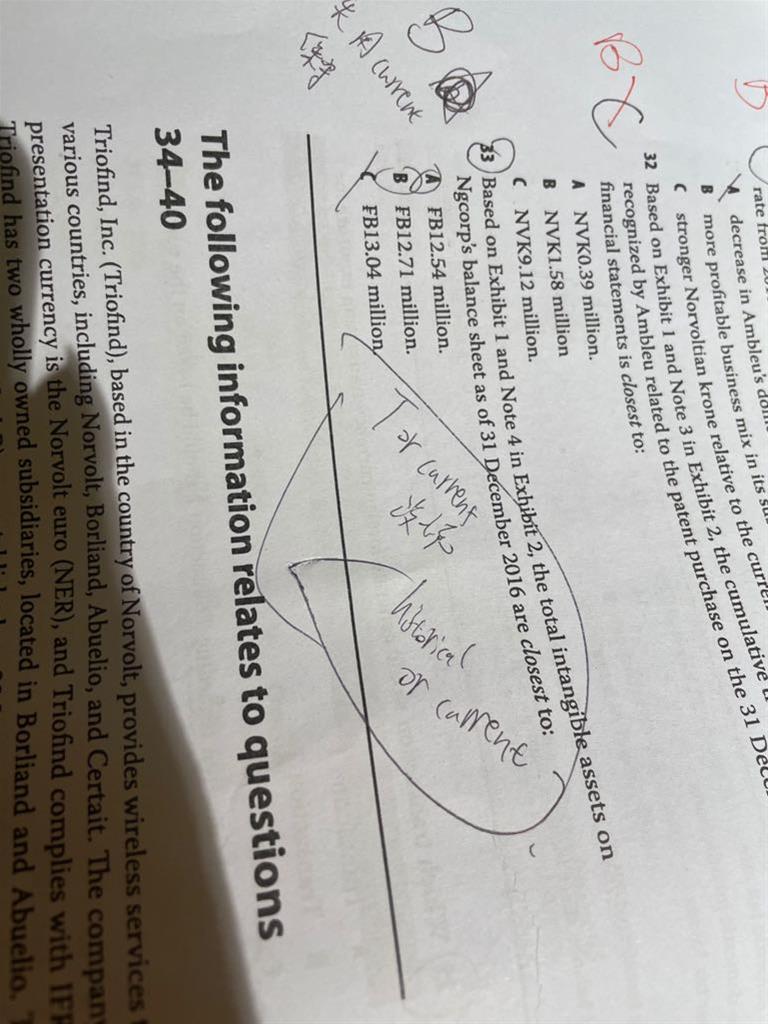 rate from
A decrease in Ambleu's
B more profitable business mix in its
C stronger Norvoltian krone relative to the
32 Based on Exhibit 1 and Note 3 in Exhibit 2, the cumulative
recognized by Ambleu related to the patent purchase on the 31
financial statements is closest to:
A NVK0.39 million.
B NVK1.58 million
C NVK9.12 million.
33 Based on Exhibit 1 and Note 4 in Exhibit 2, the total intangible assets on
Ngcorp's balance sheet as of 31 December 2016 are closest to:
A FB12.54 million.
B FB12.71 million.
C FB13.04 million.
B
B
current
T or current
historical
or current
The following information relates to questions
34–40
Triofind, Inc. (Triofind), based in the country of Norvolt, provides wireless services
various countries, including Norvolt, Borliand, Abuelio, and Certait. The
presentation currency is the Norvolt euro (NER), and Triofind complies with
Triofind has two wholly owned subsidiaries, located in Borliand and Abuelio.